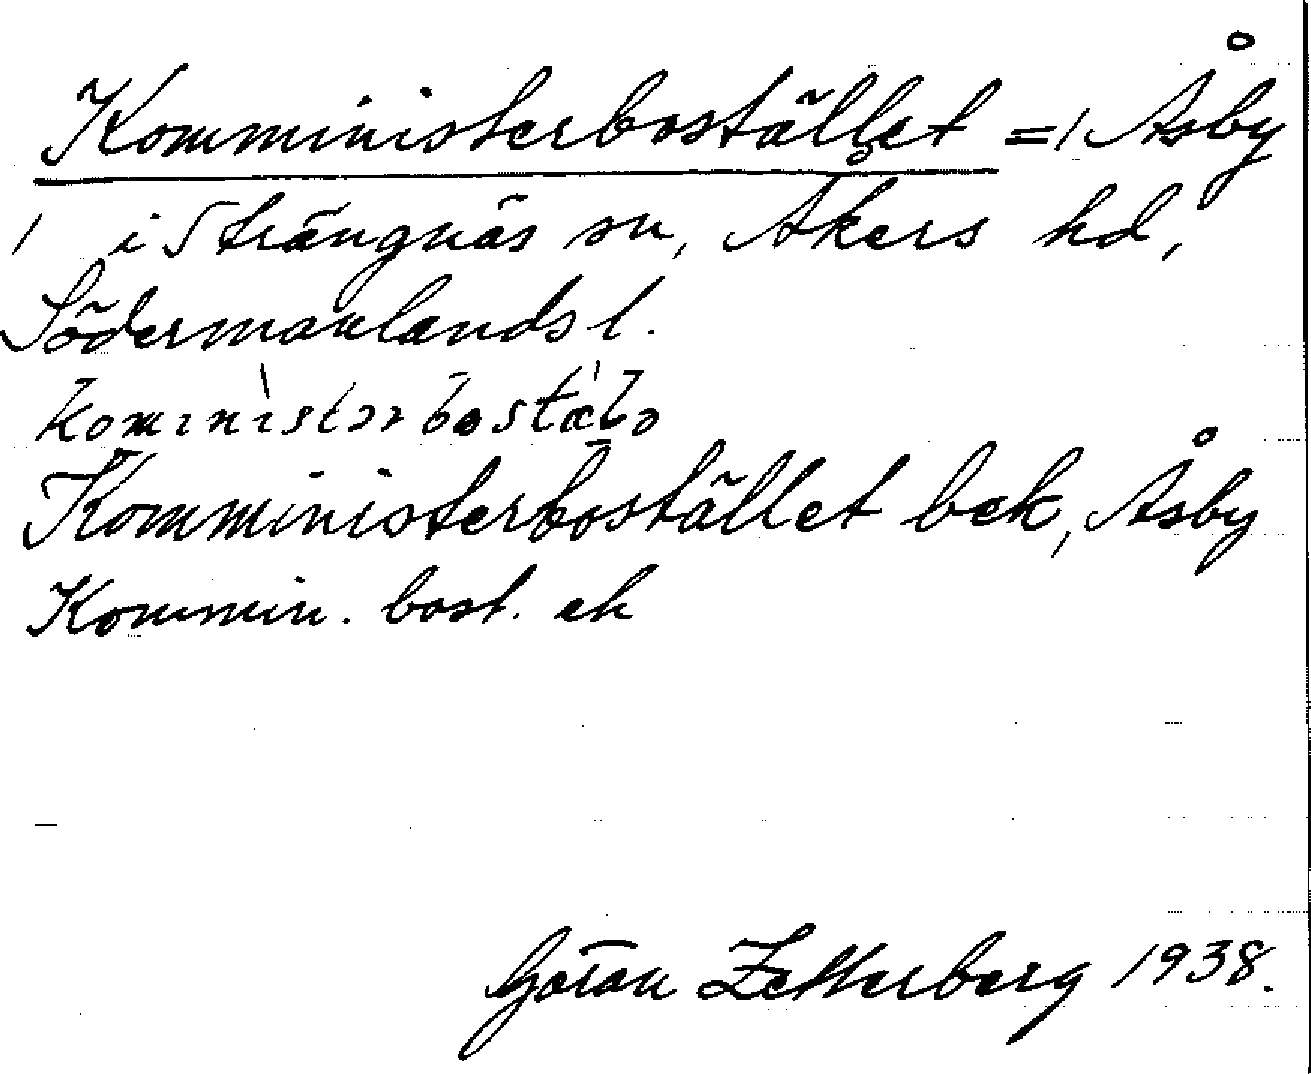 Komministerbostället =/ Åsby
/ i Strängnäs sn, Åkers hd,
Södermanlands l.
Komministerbostället bek, Åsby
Kommin. bost. ek
Göran Zetterberg 1938.